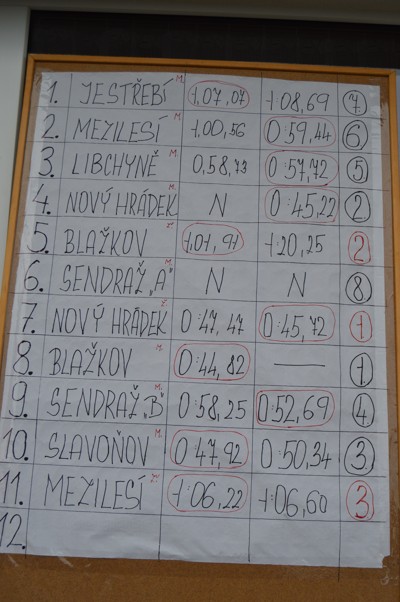 1. JESTŘEBÍ M. 1,07,07 1 08,69 7
2. MEZILESÍ M. 1,00,56 0:59,44 6
3. LIBCHYNĚ M. 0,58,73 0:57,72 5
4. NOVÝ HRÁDEK M. N 0:45,22 2
5. BLAŽKOV Ž. 1:01,91 1:20,25 2
6. SENDRAŽ „A" M. N N 8
7. NOVÝ HRÁDEK Ž. 0:47,47 0:45,72 1
8. BLAŽKOV M. 0:44,82 — 1
9. SENDRAŽ „B" M. 0:58,25 0:52,69 4
10. SLAVOŇOV M. 0 47,92 0:50,34 3
11. MEZILESÍ Ž. 1:06,22 1:06,60 3
12.